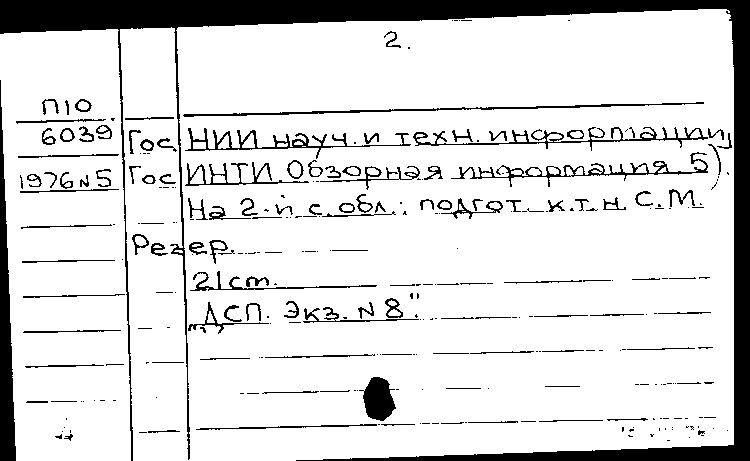 2.
П10
6039 Гос НИИ науч. и техн. информации,
1976 N5 Гос ИНТИ. Обзорная информация. 5).
На 2-й с. обл.: подгот. к.т.н. С.М.
Резер.
21 cm.
"ДСП. Экз. N 8".